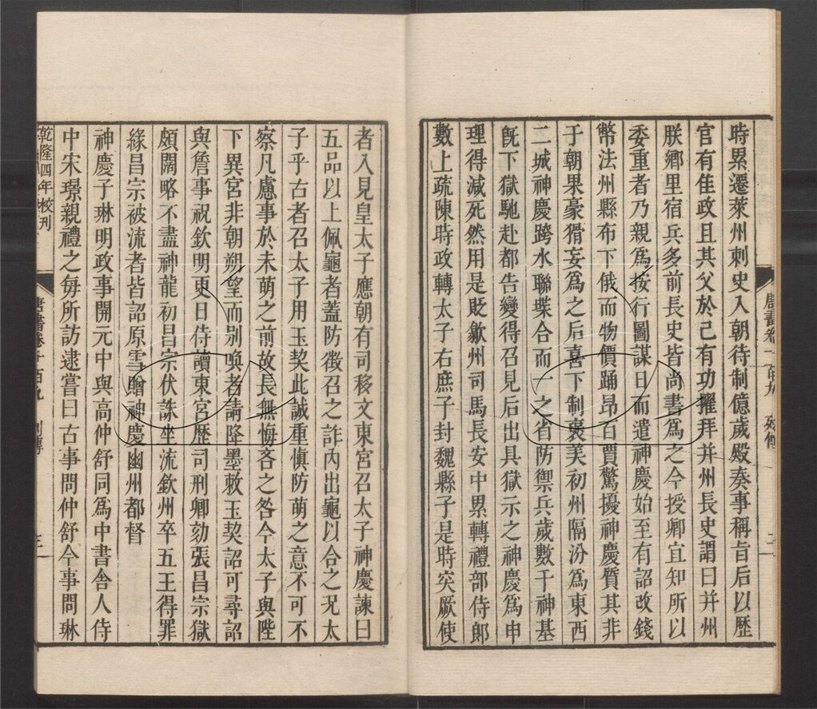 時累遷萊州刺史入朝待制億歲殿奏事稱旨后以歷
官有佳政且其父於己有功擢拜并州長史謂曰并州
朕鄉里宿兵多前長史皆尚書為之今授卿宜知所以
委重者乃親為按行圖謀日而遣神慶始至有詔改錢
幣法州縣布下俄而物價踊昂百賈驚擾神慶質其非
于朝果豪猾妄為之后喜下制褒美初州隔汾為東西
二城神慶跨水聯堞合而一之省防禦兵歲數千神基
旣下獄馳赴都告變得召見后出具獄示之神慶為申
理得減死然用是貶歙州司馬長安中累轉禮部侍郎
數上疏陳時政轉太子右庶子封魏縣子是時突厥使
唐書卷一百九
者入見皇太子應朝有司移文東宮召太子神慶諫曰
五品以上佩龜者蓋防徵召之詐內出龜以合之况太
子乎古者召太子用玉契此誠重慎防萌之意不可不
察凡慮事於未萌之前故長無悔吝之咎今太子與陛
下異宮非朝朔望而別喚者請降墨敕玉契詔可尋詔
與詹事祝欽明更日侍讀東宮歷司刑卿劾張昌宗獄
頗闊略不盡神龍初昌宗伏誅坐流欽州卒五王得罪
緣昌宗被流者皆詔原雪贈神慶幽州都督
神慶子琳明政事開元中與高仲舒同為中書舍人侍
中宋璟親禮之每所訪逮嘗曰古事問仲舒今事問琳
乾隆四年校刊
唐書卷一百九 列傳